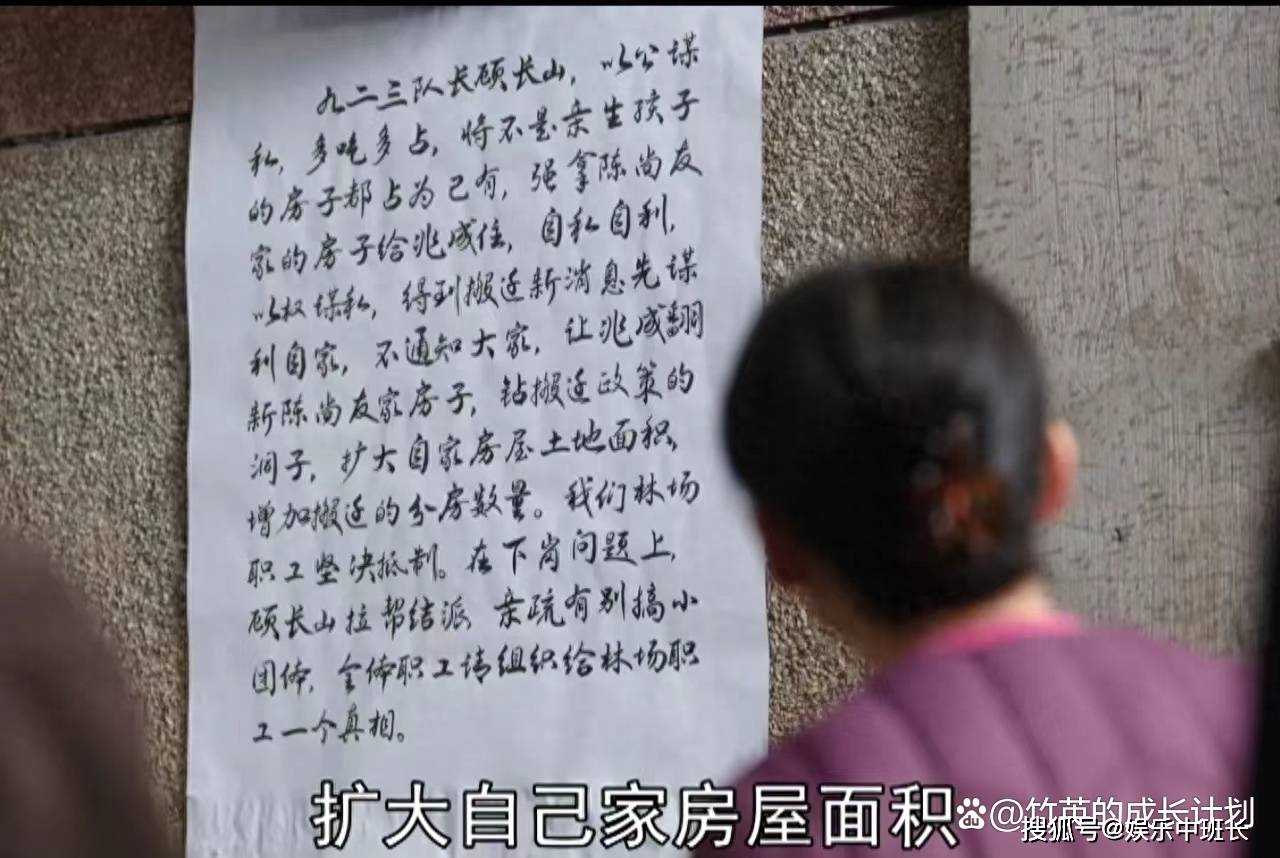 九二三队长顾长山，以公谋
私，多吨多占，将不是亲生孩子
的房子都占为己有，强拿陈尚友
家的房子给兆成住，自私自利，
以权谋私，得到搬迁新消息先谋
利自家，不通知大家，让兆成翻
新陈尚友家房子，钻搬迁政策的
洞子，扩大自家房屋土地面积，
增加搬迁的分房数量。我们林场
职工坚决抵制。在下岗问题上，
顾长山拉帮结派 亲疏有别搞小
团体，全体职工请组织给林场职
工一个真相。
扩大自己家房屋面积
du @竹英的成长计划
搜狐号@娱乐中班长